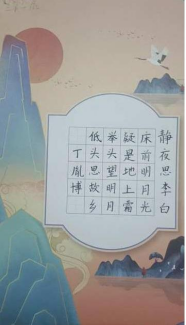 静夜思 李白
床前明月光
疑是地上霜
举头望明月
低头思故乡
丁胤博